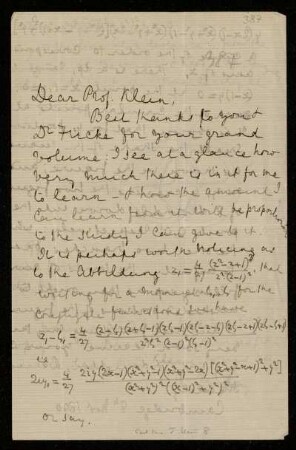 387
Dear Prof. Klein,
Best thanks to you &
Dr Fricke for your grand
volume: I see at a glance how
very much there is in it for me
to learn — & how the amount I
can learn from it will be proportional
to the study I can give to it.
It is perhaps worth noticing as
to the Abbildung z₁ = 4/27 (z²-z+1)³/z²(z-1)², that
writing for a moment
z₁-ζ₁ = 4/27 (z-ζ)(z+ζ-1)(zζ-1)(zζ-z-ζ)(zζ-z+1)(zζ-ζ+1)/z²ζ²(z-1)²(ζ-1)²
is
2iy₁ = 4/27 2iy(2x-1)(x²+y²-1)(x²+y²-2x)[(x²+y²-x+1)²+y²]/(x²+y²)²((x-1)²+y²)²
or say,